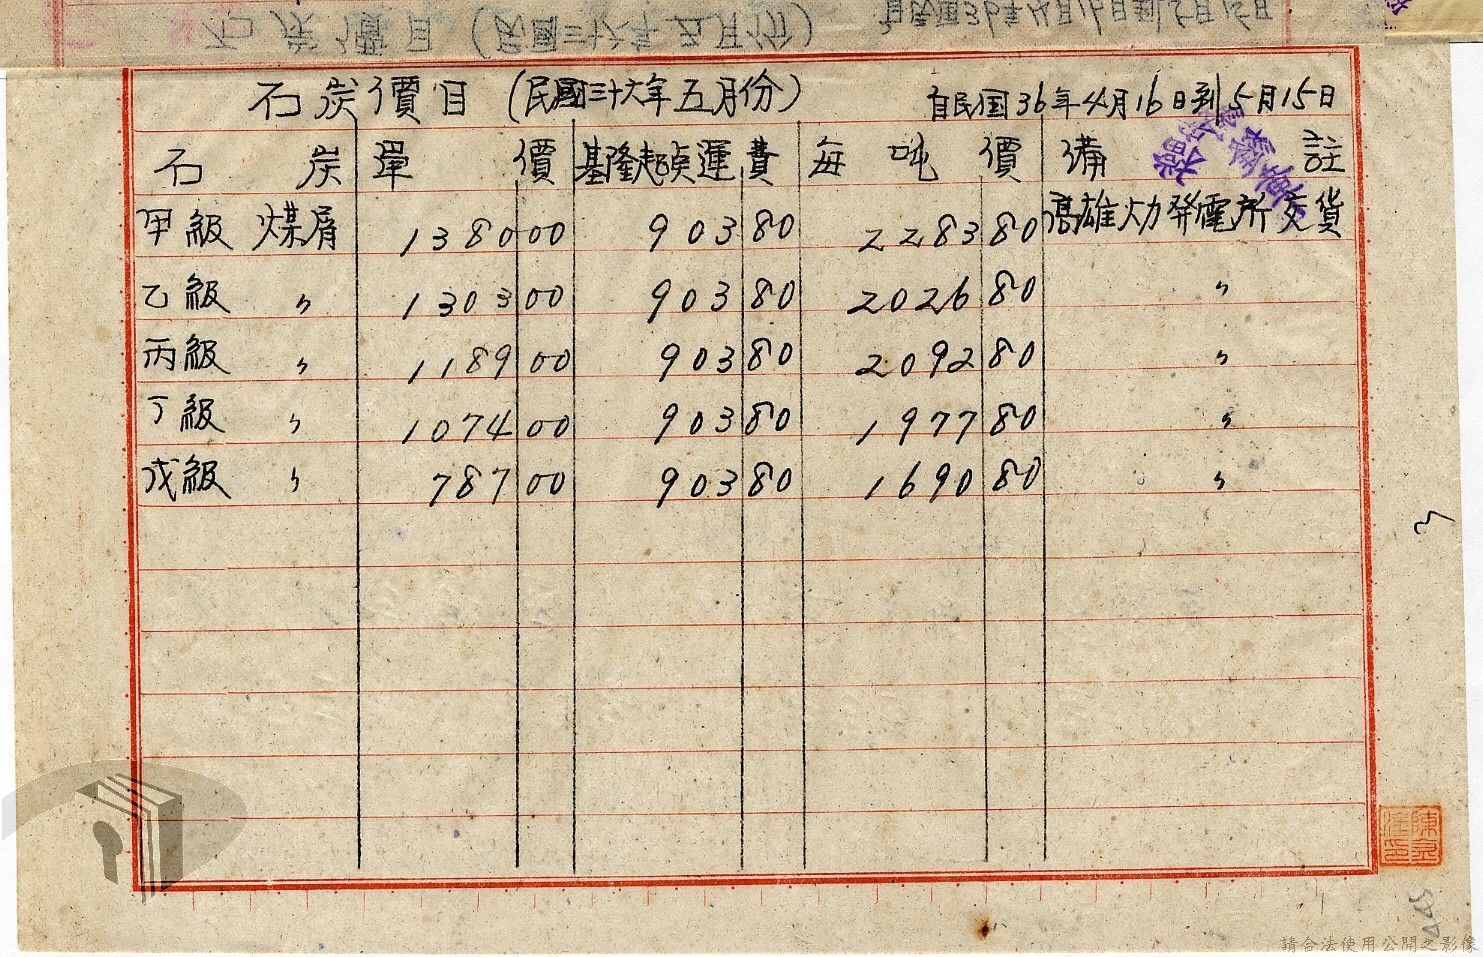 石炭價目(民國三十六年五月份) 自民国36年4月16日到5月15日
石炭 單價 基隆起点運費 每吨價 備註
甲級 煤屑 1380 00 903 80 2283 80 高雄火力発電所交貨
乙級 〃 1303 00 903 80 2026 80 〃
丙級 〃 1189 00 903 80 2092 80 〃
丁級 〃 1074 00 903 80 1977 80 〃
戊級 〃 787 00 903 80 1690 80 〃
3
請合法使用公開之影像